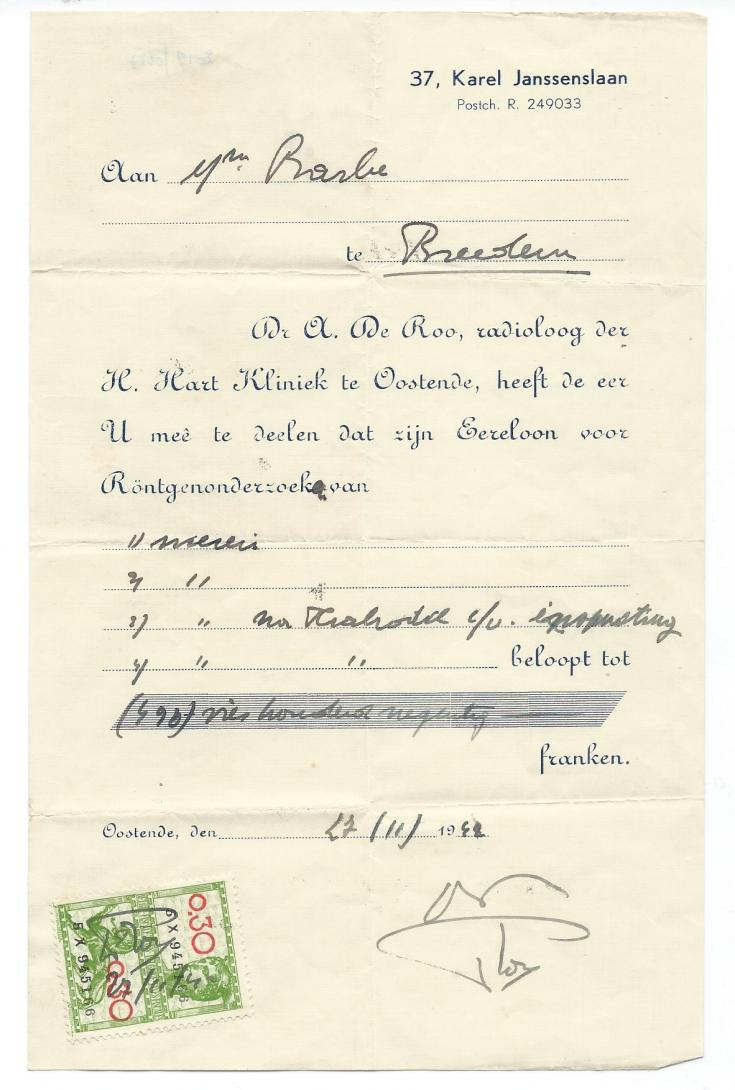 37, Karel Janssenslaan
Postch. R. 249033
Aan Mr
te Breedene
Dr A. De Roo, radioloog der
H. Hart Kliniek te Oostende, heeft de eer
U meê te deelen dat zijn Eereloon voor
Röntgenonderzoek van
" nieren
2) "
3) " na
4) " " beloopt tot
(490) vier honderd negentig
franken.
Oostende, den 27/11/ 1942
0.30